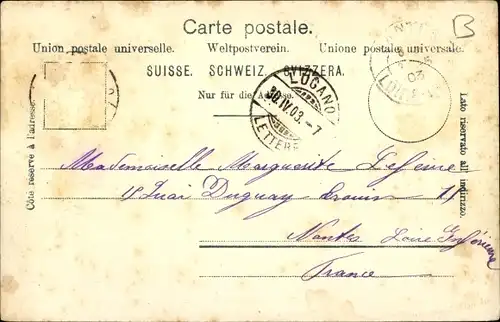 Carte postale.
B
Union postale universelle. Weltpostverein. Unione postale universale.
SUISSE. SCHWEIZ. SVIZZERA.
Nur für die Adresse.
LUGANO
30.IV.03.-7
LETTERE
03
Côté réservé à l'adresse.
Lato riservato all'indirizzo.
Mademoiselle Marguerite Lefeivre
15 Quai Duguay-Trouin 15
Nantes Loire Inférieure
France